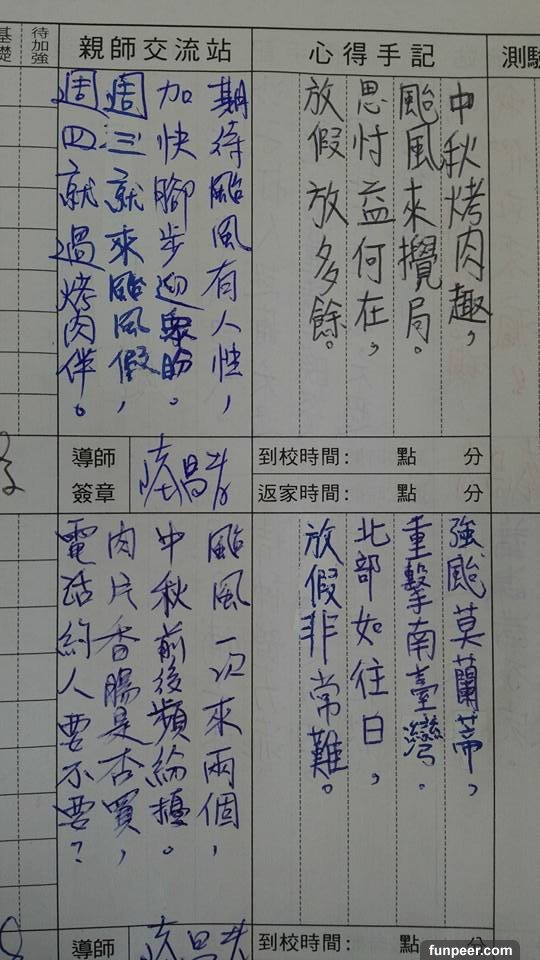 基礎
待加強
親師交流站
心得手記
測驗
中秋烤肉趣，
颱風來攪局。
思忖益何在，
放假放多餘。
期待颱風有人性，
加快腳步迎眾盼。
週三就來颱風假，
週四就過烤肉伴。
導師
簽章
到校時間： 點 分
返家時間： 點 分
強颱莫蘭蒂，
重擊南臺灣。
北部如往日，
放假非常難。
颱風一次來兩個，
中秋前後頻紛擾。
肉片香腸是否買，
電話約人要不要？
導師
到校時間： 點 分
funpeer.com